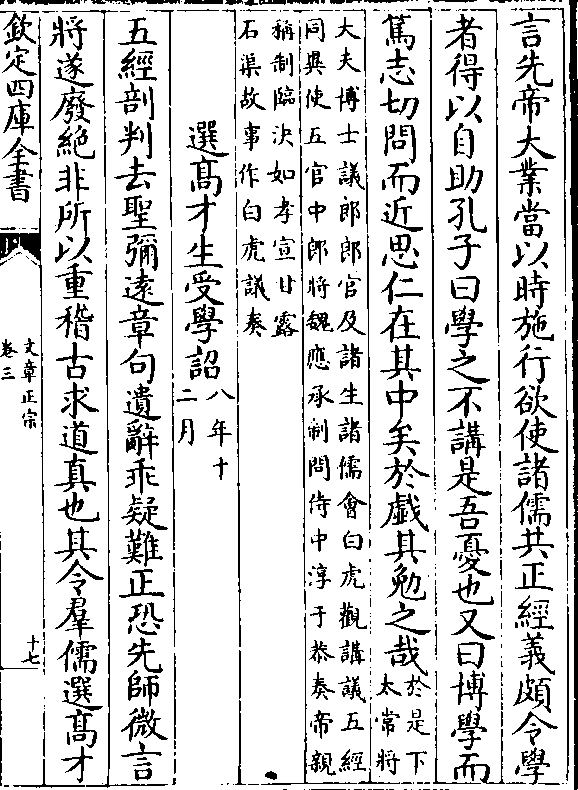 言先帝大業當以時施行欲使諸儒共正經義頗令學
者得以自助孔子曰學之不講是吾憂也又曰博學而
篤志切問而近思仁在其中矣於戲其勉之哉
於是下
太常將
大夫博士議郎郎官及諸生諸儒會白虎觀講議五經
同異使五官中郎將魏應承制問侍中淳于恭奏帝親
稱制臨決如孝宣甘露
石渠故事作白虎議奏
選髙才生受學詔
八年十
二月
五經剖判去聖彌逺章句遺辭乖疑難正恐先師微言
將遂廢絶非所以重稽古求道真也其令羣儒選髙才
欽定四庫全書
文章正宗
卷三
十七